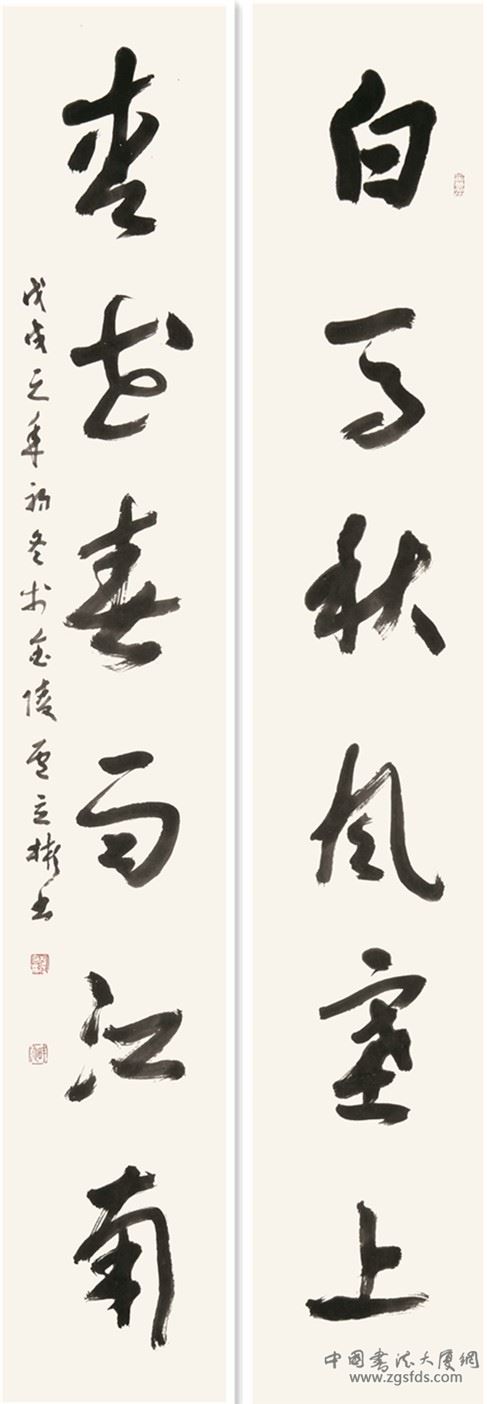 白马秋风塞上
杏花春雨江南
戊戌之年初冬于金陵
立彬书
中国书法大厦網
www.zgsfds.com